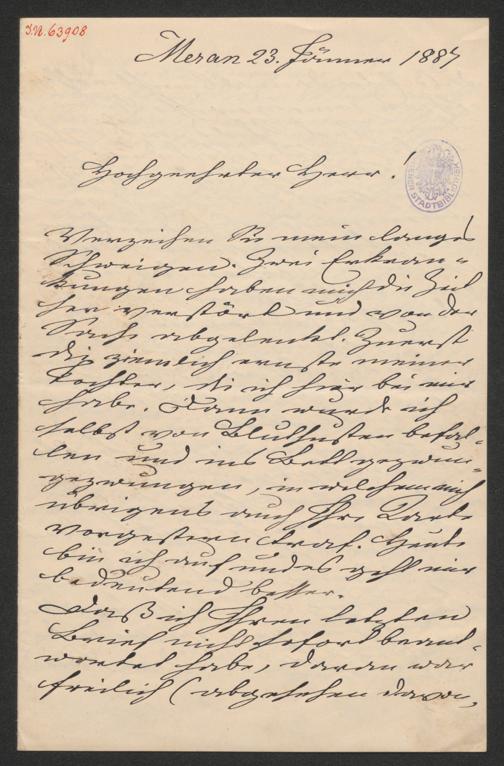 I.N. 63908
Meran 23. Jänner 1887
Hochgeehrter Herr!
STADTBIBL
Verzeihen Sie mein langes
Schweigen. Zwei Erkran-
kungen haben mich die Zeit
her verstört und von der
Sache abgelenkt. Zuerst
die ziemlich ernste meiner
Tochter, die ich hier bei mir
habe. Dann wurde ich
selbst von Bluthusten befal-
len und ins Bett gezwun-
gezwungen, in welchem mich
übrigens auch Ihre Karte
vorgestern traf. Heute
bin ich auf und es geht mir
bedeutend besser.
Daß ich Ihren letzten
Brief nicht sofort beant-
wortet habe, daran war
freilich (abgesehen davon,